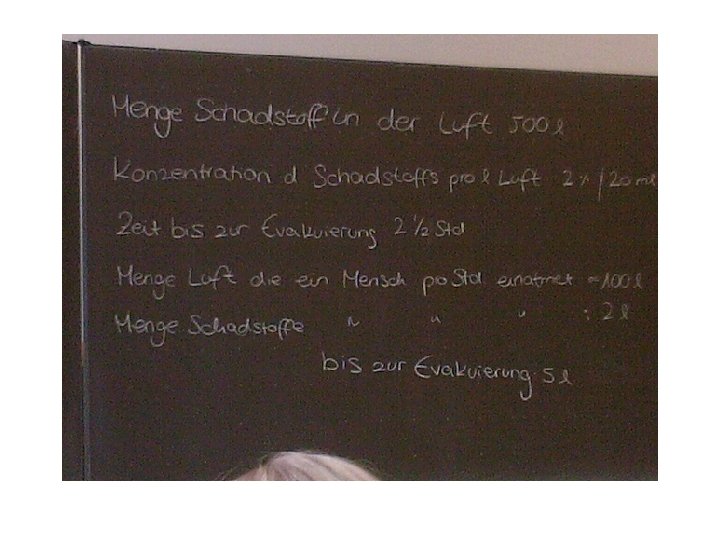 Menge Schadstoff in der Luft 500 l
Konzentration d Schadstoffs pro l Luft 2 % / 20 ml
Zeit bis zur Evakuierung 2 1/2 Std
Menge Luft die ein Mensch po Std einatmet ~100 l
Menge Schadstoffe " " " : 2 l
bis zur Evakuierung: 5 l